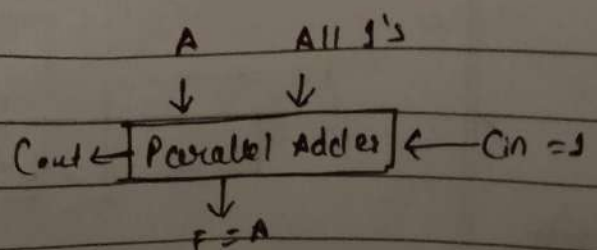 A All 1's
Cout Parallel Adder Cin = 1
F = A